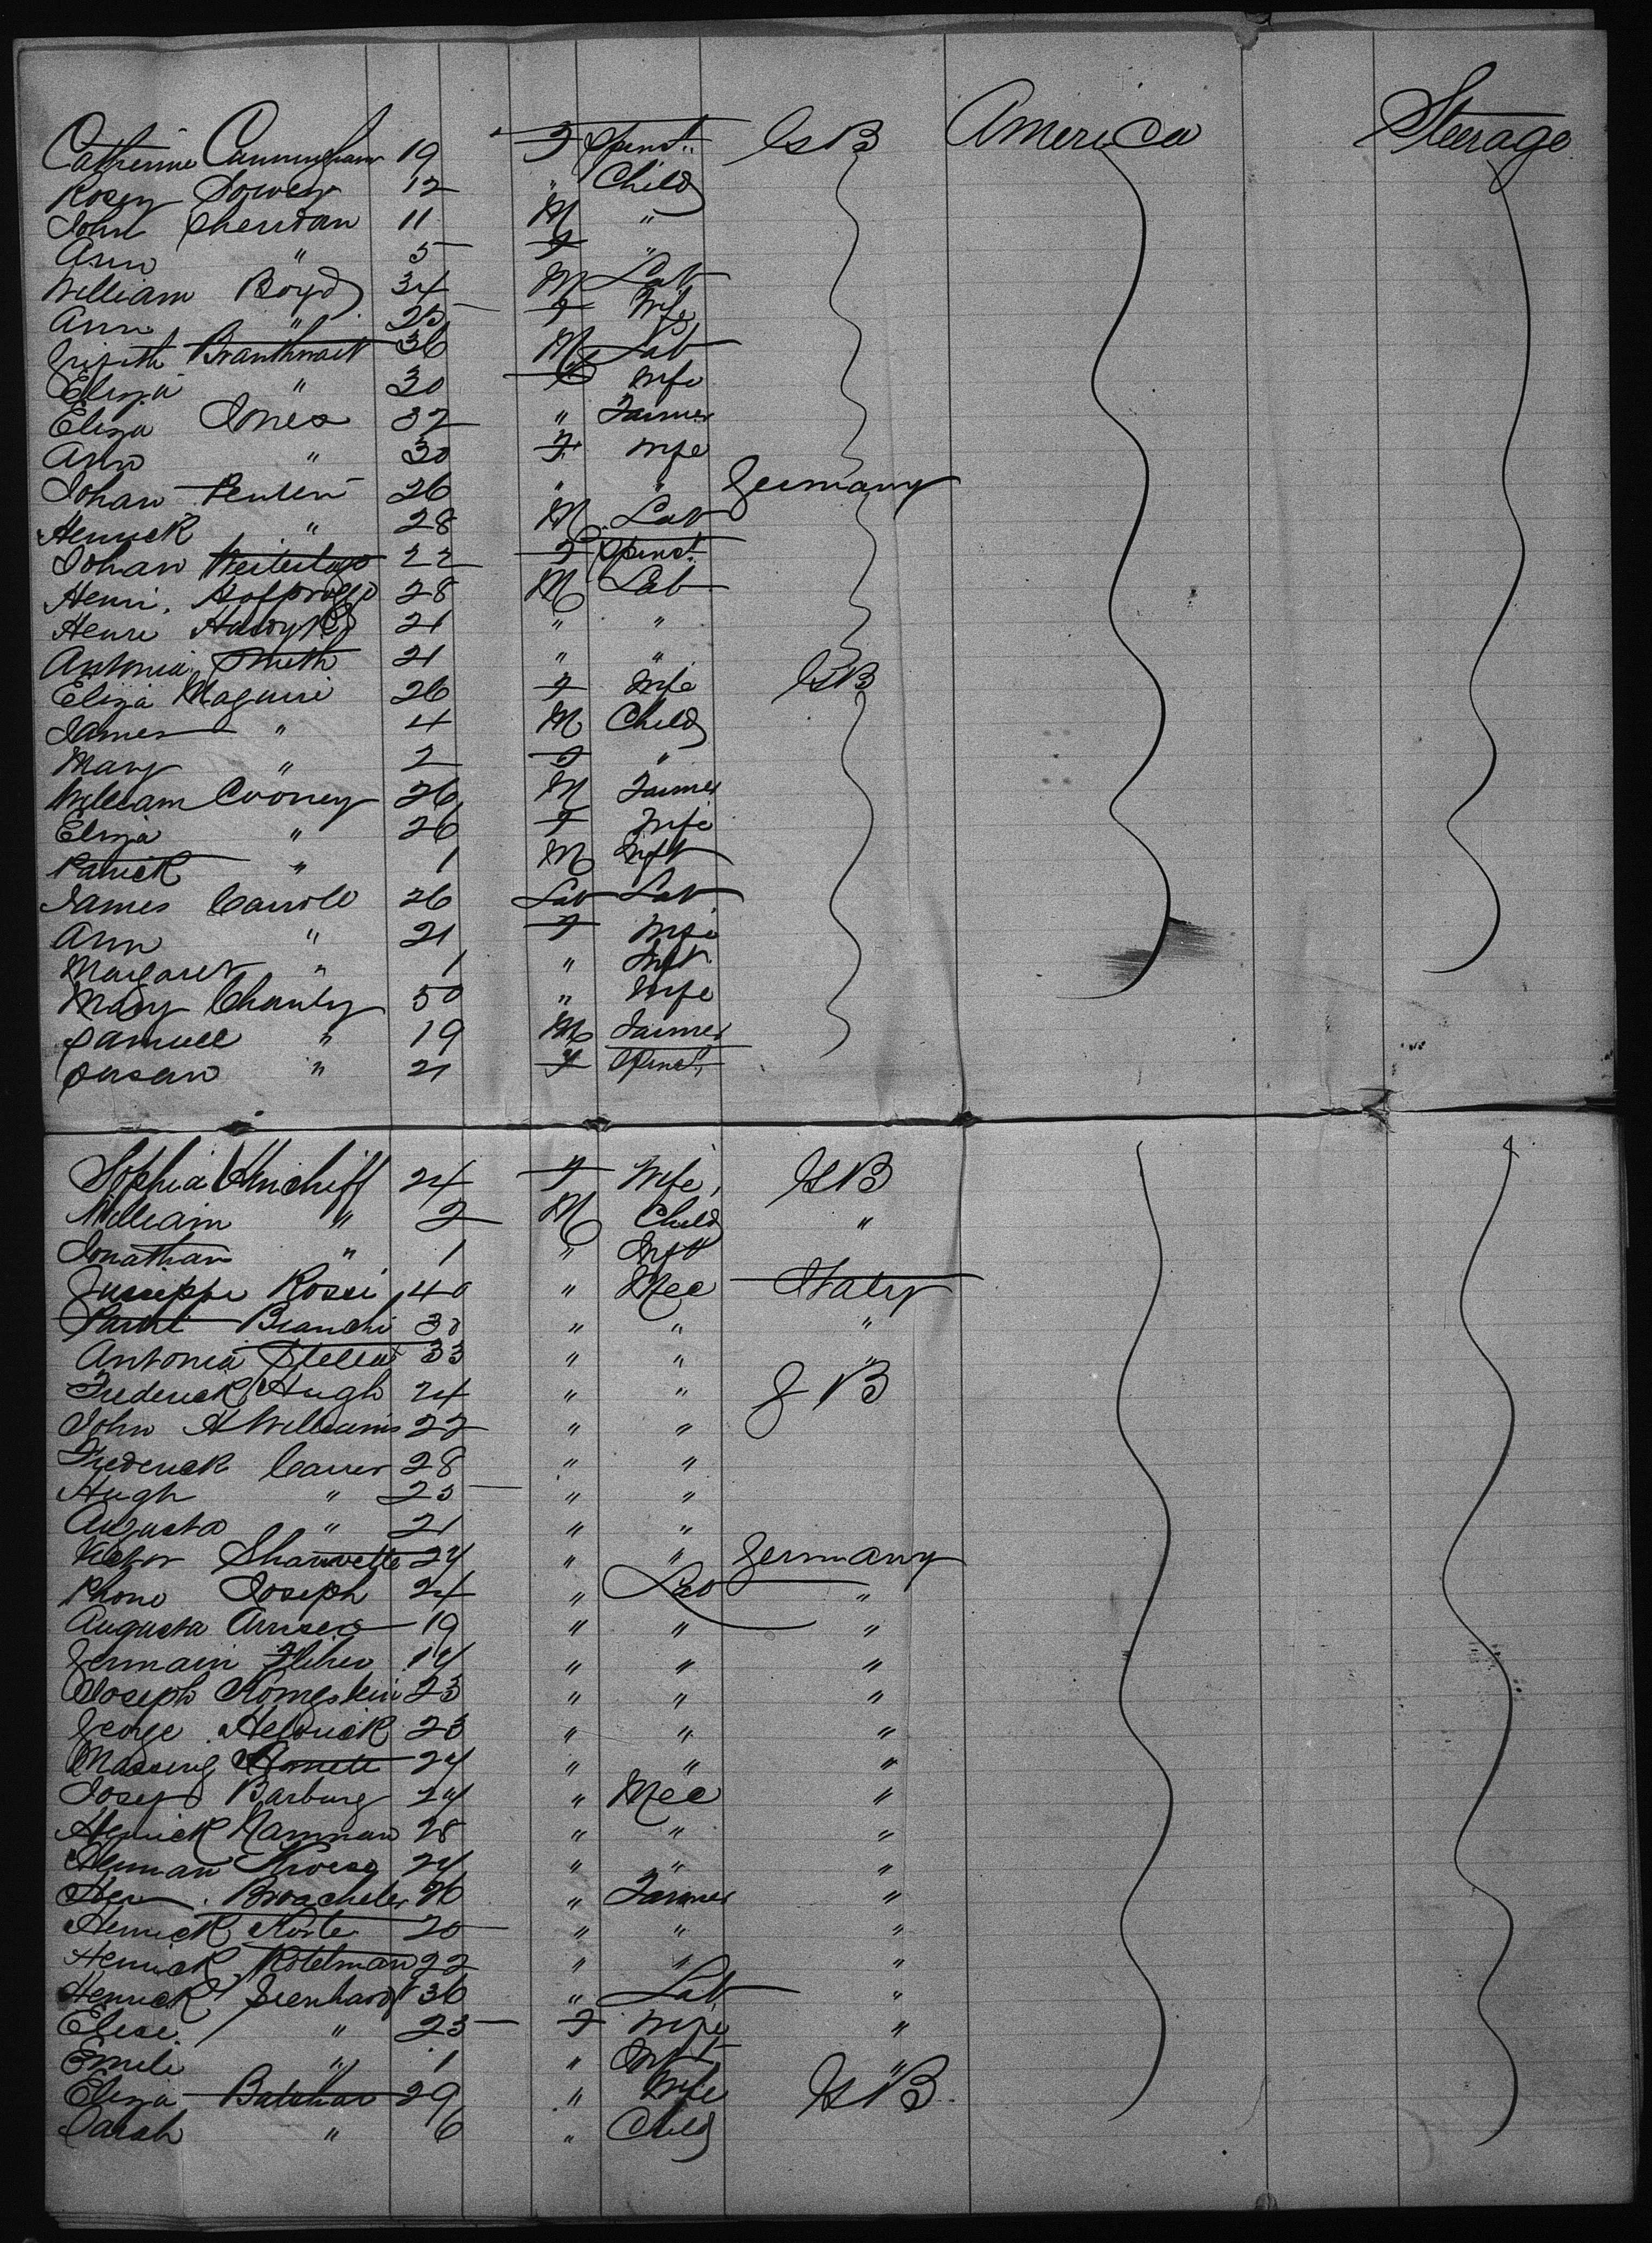 Catherine Cunningham 19 F Spinst. GB America Steerage
Rosey 12 " Child
John Sheridan 11 M "
Ann " 5 F "
William Boyd 34 M Lab
Ann " 25 F Wife
Branthwait 36 M Lab
Eliza " 30 F Wife
Eliza Jones 32 " Farmer
Ann " 30 F Wife
Johan 26 " " Germany
Henrick " 28 M Lab
Johan 22 F Spinst.
Henri. 28 M Lab
Henri 21 " "
Antonia Smith 21 " "
Eliza Maguire 26 F Wife GB
James " 4 M Child
Mary " 2 F "
William Cooney 26 M Farmer
Eliza " 26 F Wife
Patrick " 1 M Inft
James Carroll 26 Lab Lab
Ann " 21 F Wife
Margaret " 1 " Inft
Mary 50 " Wife
Samuel " 19 M Farmer
Susan " 21 F Spinst.
Sophia Hinchiff 24 F Wife, GB
William " 2 M Child "
Jonathan " 1 " Inft
Guiseppe Rossi 40 " Mec Italy
Bianchi 30 " " "
Antonia Stella 33 " " "
Frederick Hugh 24 " " G B
John H Williams 22 " "
Frederick Carrer 28 " "
Hugh " 25 " "
Augusta " 21 " "
Victor 24 " " Germany
Joseph 24 " Lab "
Augusta 19 " " "
Germain 14 " " "
Joseph Komgstein 23 " " "
George Heldrick 23 " " "
24 " " "
Josep Barbung 24 " Mec "
Henrick Hamman 28 " " "
Herman Kroese 24 " " "
26 " Farmer "
Henrick Korte 20 " " "
Henrick Kotelman 22 " " "
Henrick Gienhardt 36 " Lab "
Elise. " 25 F Wife "
Emili " 1 " Inft "
Eliza Batchar 29 " Wife GB
Sarah " 6 " Child